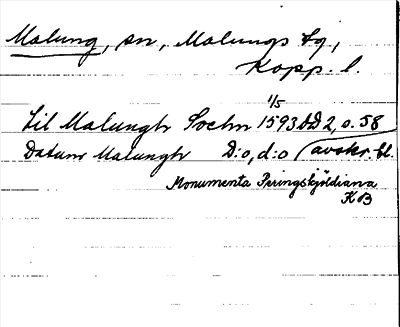 Malung, sn, Malungs tg,
Kopp. l.
1/5
Til Malungh Sochn 1593 DD 2, o. 58
Datum Malungh D:o, d:o (avskr. bl.
Monumenta Peringskjöldiana
KB